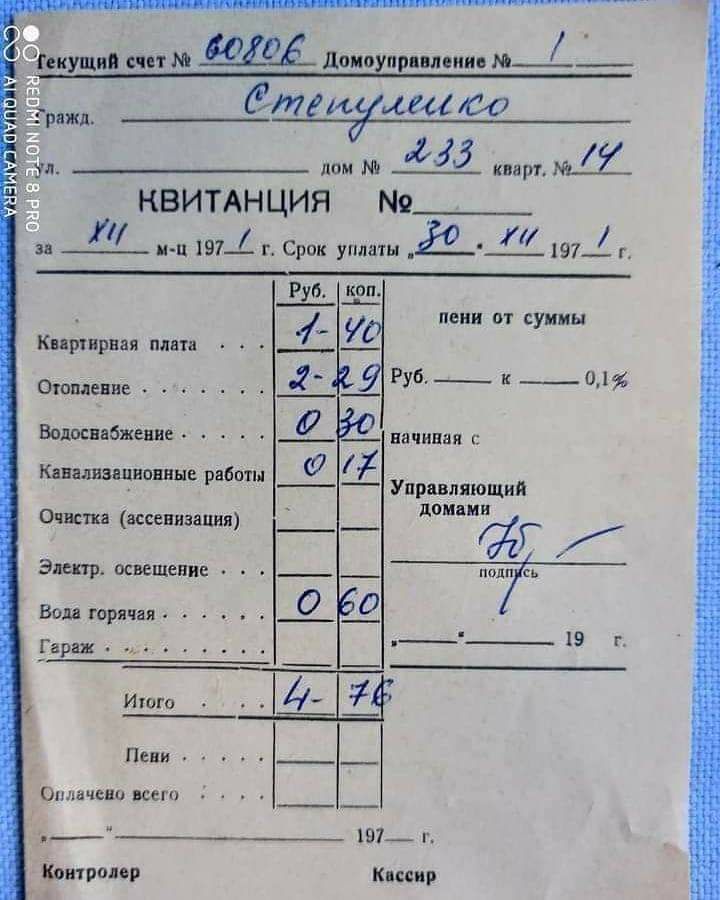 Текущий счет № 60806 Домоуправление № 1
Гражд. Степуленко
ул. дом № 233 кварт. № 14
КВИТАНЦИЯ №
за XII м-ц 1971 г. Срок уплаты „30" XII 1971 г.
Руб. коп.
пени от суммы
Квартирная плата . . . 1- 40
Отопление . . . . . . 2- 29
Руб. к 0,1%
Водоснабжение . . . . . 0 30
начиная с
Канализационные работы 0 17
Управляющий домами
Очистка (ассенизация)
подпись
Электр. освещение . . .
Вода горячая . . . . . . 0 60
Гараж . . . . . . . . .
„ " 19 г.
Итого . . . . 4- 76
Пени . . . . .
Оплачено всего . . . .
„ " 197 г.
Контролер Кассир
REDMI NOTE 8 PRO
AI QUAD CAMERA